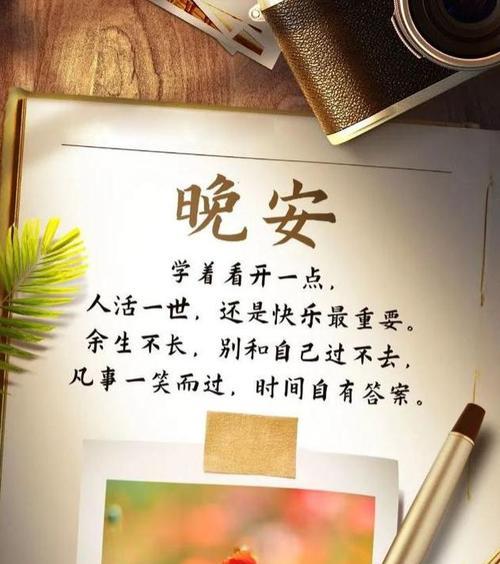 晚安
学着看开一点,
人活一世,还是快乐最重要。
余生不长,别和自己过不去,
凡事一笑而过,时间自有答案。